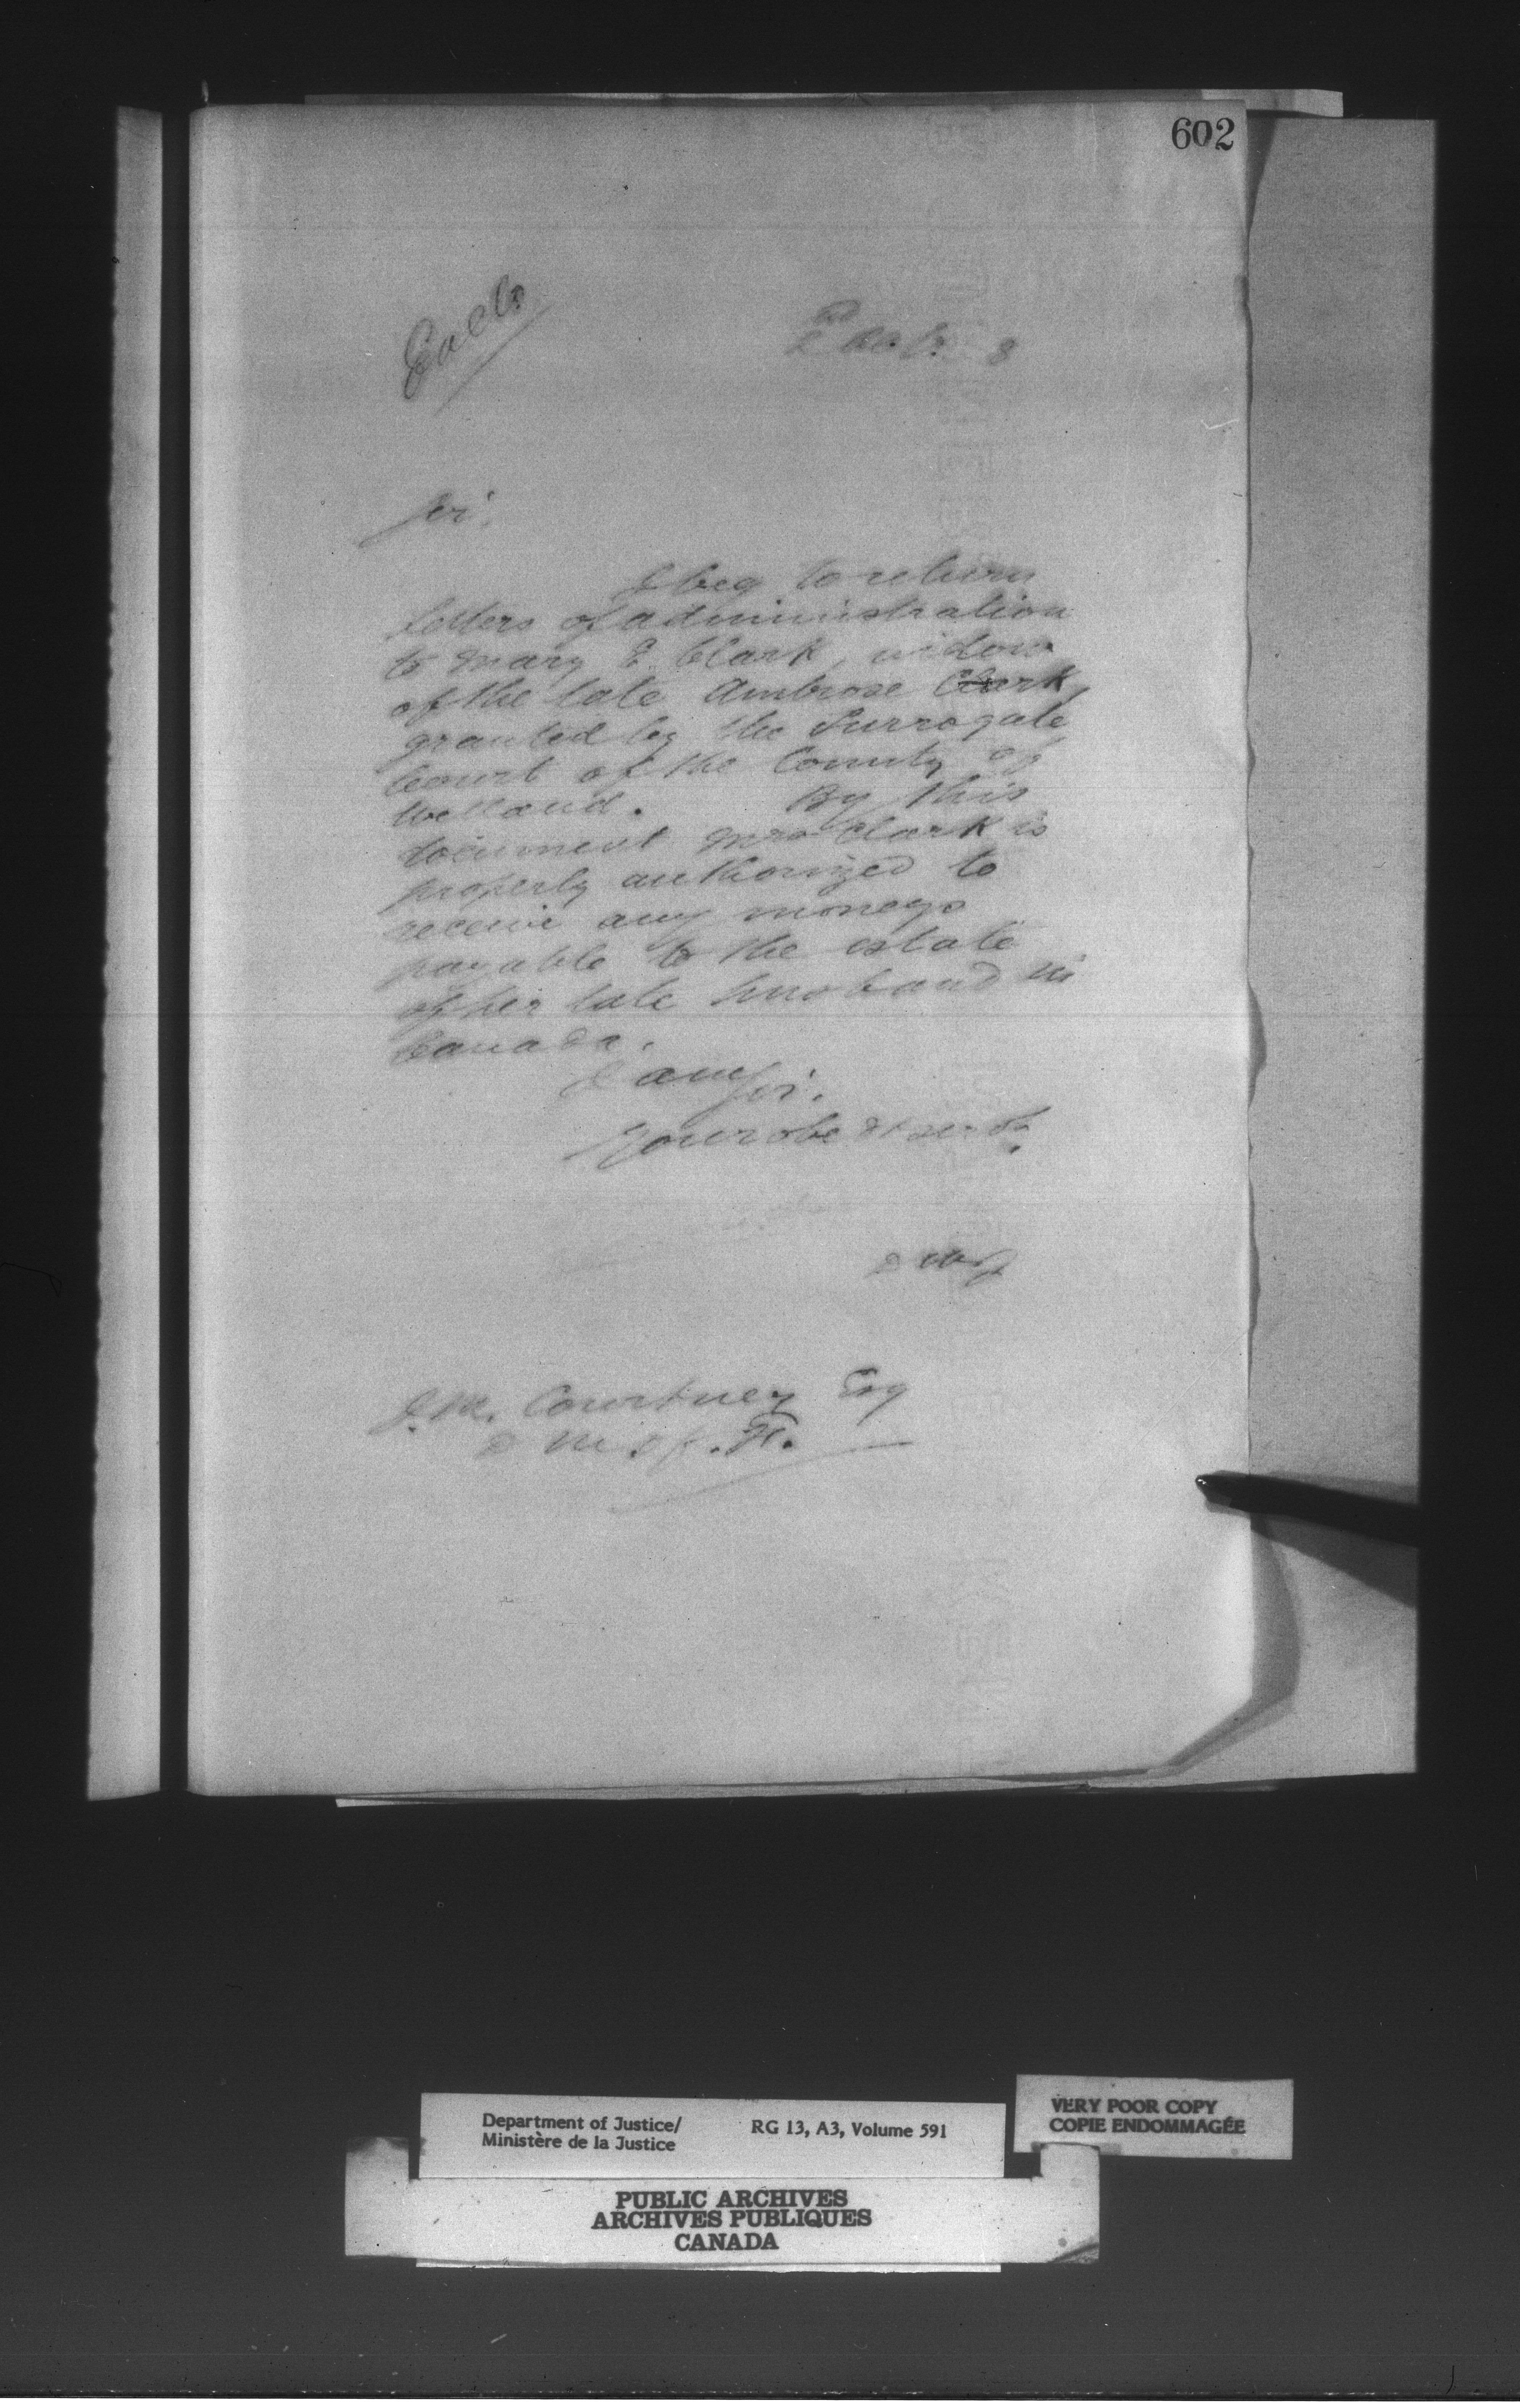 602
Encls
2nd Octr. 8
Sir,
I beg to return
letters of administration
to Mary E. Clark, widow
of the late Ambrose Clark,
granted by the Surrogate
Court of the County of
Welland. By this
document Mrs Clark is
properly authorized to
receive any moneys
payable to the estate
of her late husband in
Canada.
I am Sir,
Your obedt servt.
J. M. Courtney Esq
D. M. of. F.
Department of Justice/
Ministère de la Justice
RG 13, A3, Volume 591
VERY POOR COPY
COPIE ENDOMMAGÉE
PUBLIC ARCHIVES
ARCHIVES PUBLIQUES
CANADA